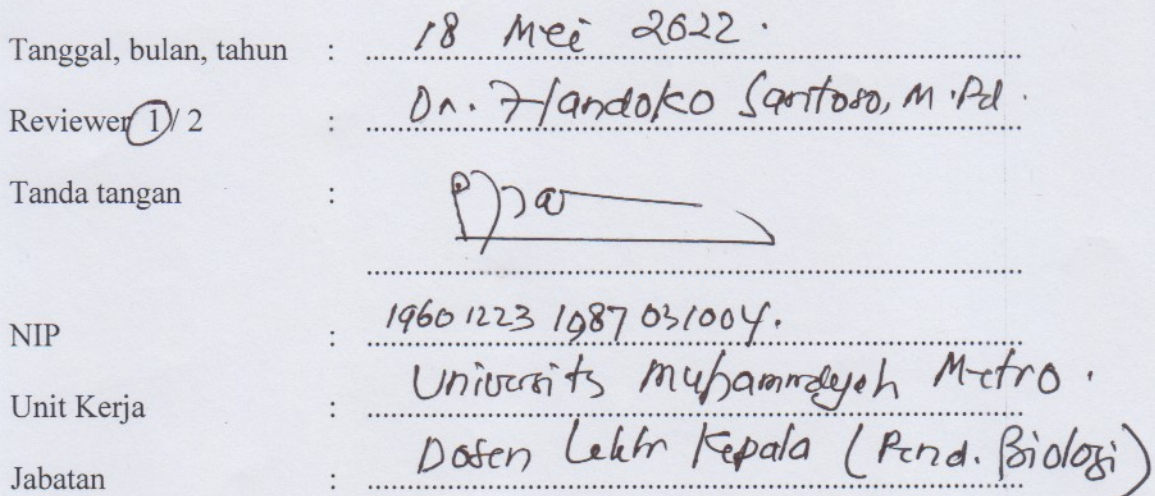 Tanggal, bulan, tahun : 18 Mei 2022.
Reviewer 1 / 2 : Dr. Handoko Santoso, M.Pd.
Tanda tangan :
NIP : 19601223 198703 1004.
Unit Kerja : Universits Muhammdyah Metro.
Jabatan : Dosen Lektr Kepala (Pend. Biologi)